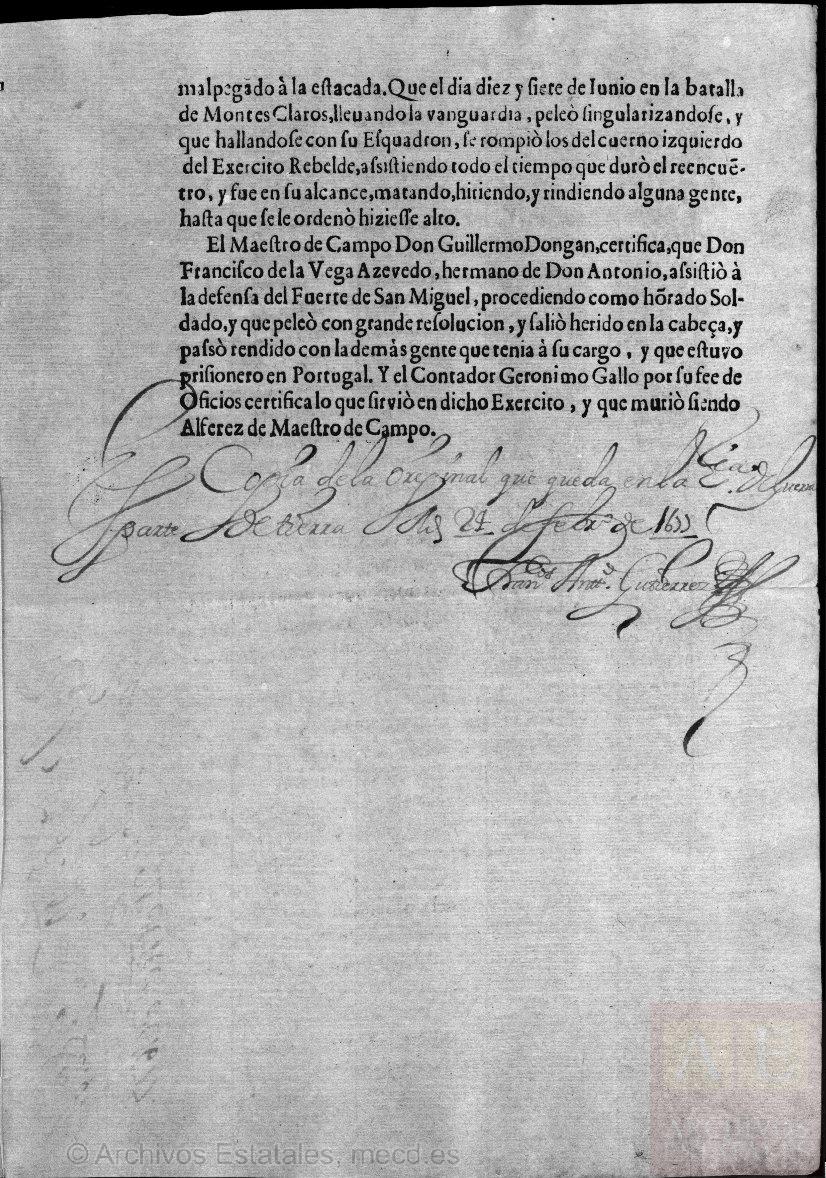 malpegādo à la eſtacada. Que el dia diez y ſiete de Iunio en la batalla
de Montes Claros, lleuando la vanguardia, peleò ſingularizandoſe, y
que hallandoſe con ſu Eſquadron, ſe rompiò los del cuerno izquierdo
del Exercito Rebelde, aſsiſtiendo todo el tiempo que durò el reencuē-
tro, y fue en ſu alcance, matando, hiriendo, y rindiendo alguna gente,
haſta que ſe le ordenò hizieſſe alto.
El Maeſtro de Campo Don Guillermo Dongan, certifica, que Don
Franciſco de la Vega Azevedo, hermano de Don Antonio, aſsiſtiò à
la defenſa del Fuerte de San Miguel, procediendo como hōrado Sol-
dado, y que peleò con grande reſolucion, y ſaliò herido en la cabeça, y
paſsò rendido con la demàs gente que tenia à ſu cargo, y que eſtuvo
priſionero en Portugal. Y el Contador Geronimo Gallo por ſu fee de
Oficios certifica lo que ſirviò en dicho Exercito, y que muriò ſiendo
Alferez de Maeſtro de Campo.
Copia de la original que queda en la de Guerra
parte de tierra 24 de febr.º de
Fran.co Antt.º Gutierrez
© Archivos Estatales, mecd.es